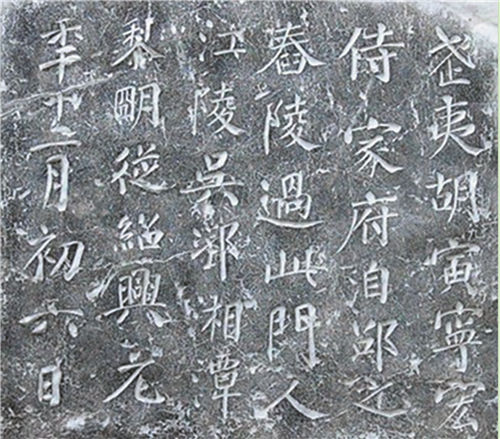 武夷胡寅寧宏
侍家府洎邵之
舂陵過此門人
江陵吳郛湘潭
黎朙從紹興元
秊十二月初六日